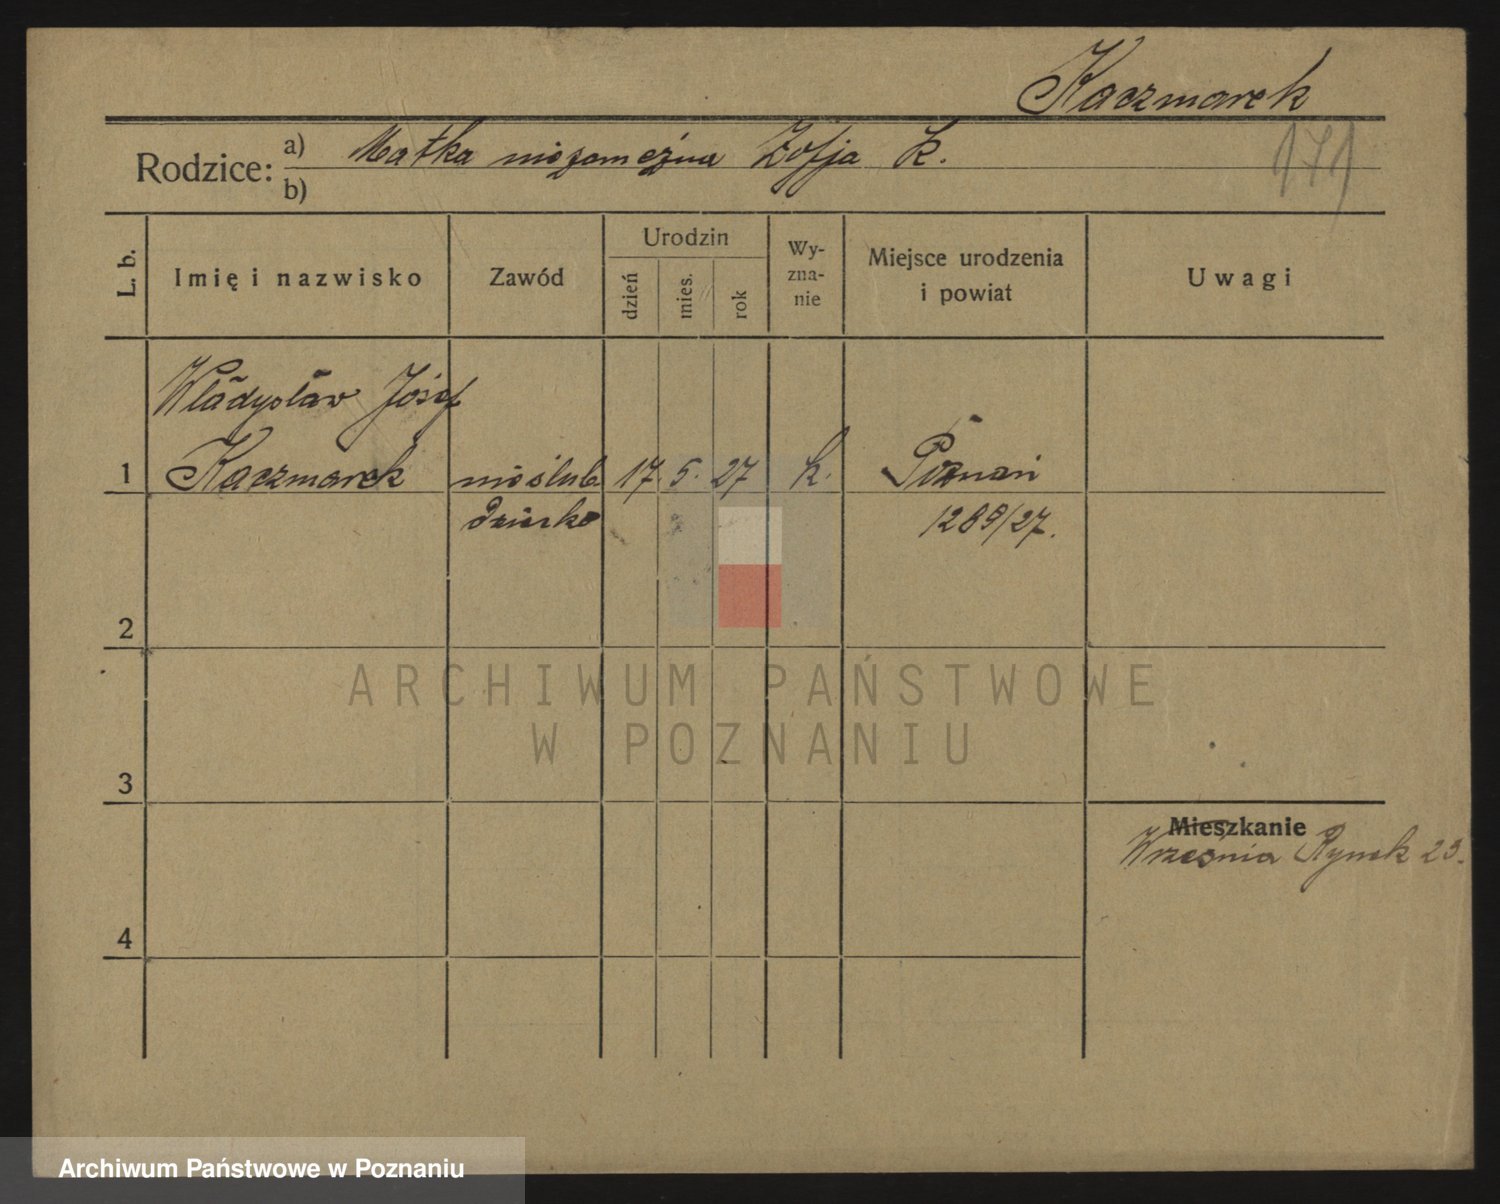 Kaczmarek
Rodzice: a) Matka niezamężna Zofja K.
b)
171
L. b.
Imię i nazwisko
Zawód
Urodzin
dzień
mies.
rok
Wy-
zna-
nie
Miejsce urodzenia
i powiat
Uwagi
Władysław Józef
1 Kaczmarek nieślub. 17. 5. 27 k. Poznań
dziecko 1289/27.
2
3
4
Mieszkanie
Września Rynek 23.
ARCHIWUM PAŃSTWOWE
W POZNANIU
Archiwum Państwowe w Poznaniu